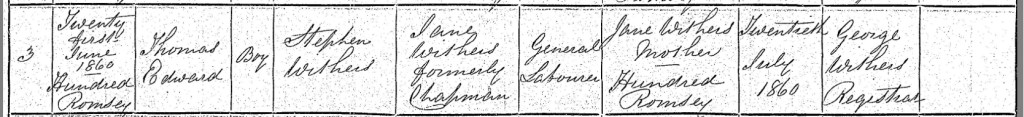 3
Twenty
first
June
1860
Hundred
Romsey
Thomas
Edward
Boy
Stephen
Withers
Jane
Withers
formerly
Chapman
General
Labourer
Jane Withers
Mother
Hundred
Romsey
Twentieth
July
1860
George
Withers
Registrar